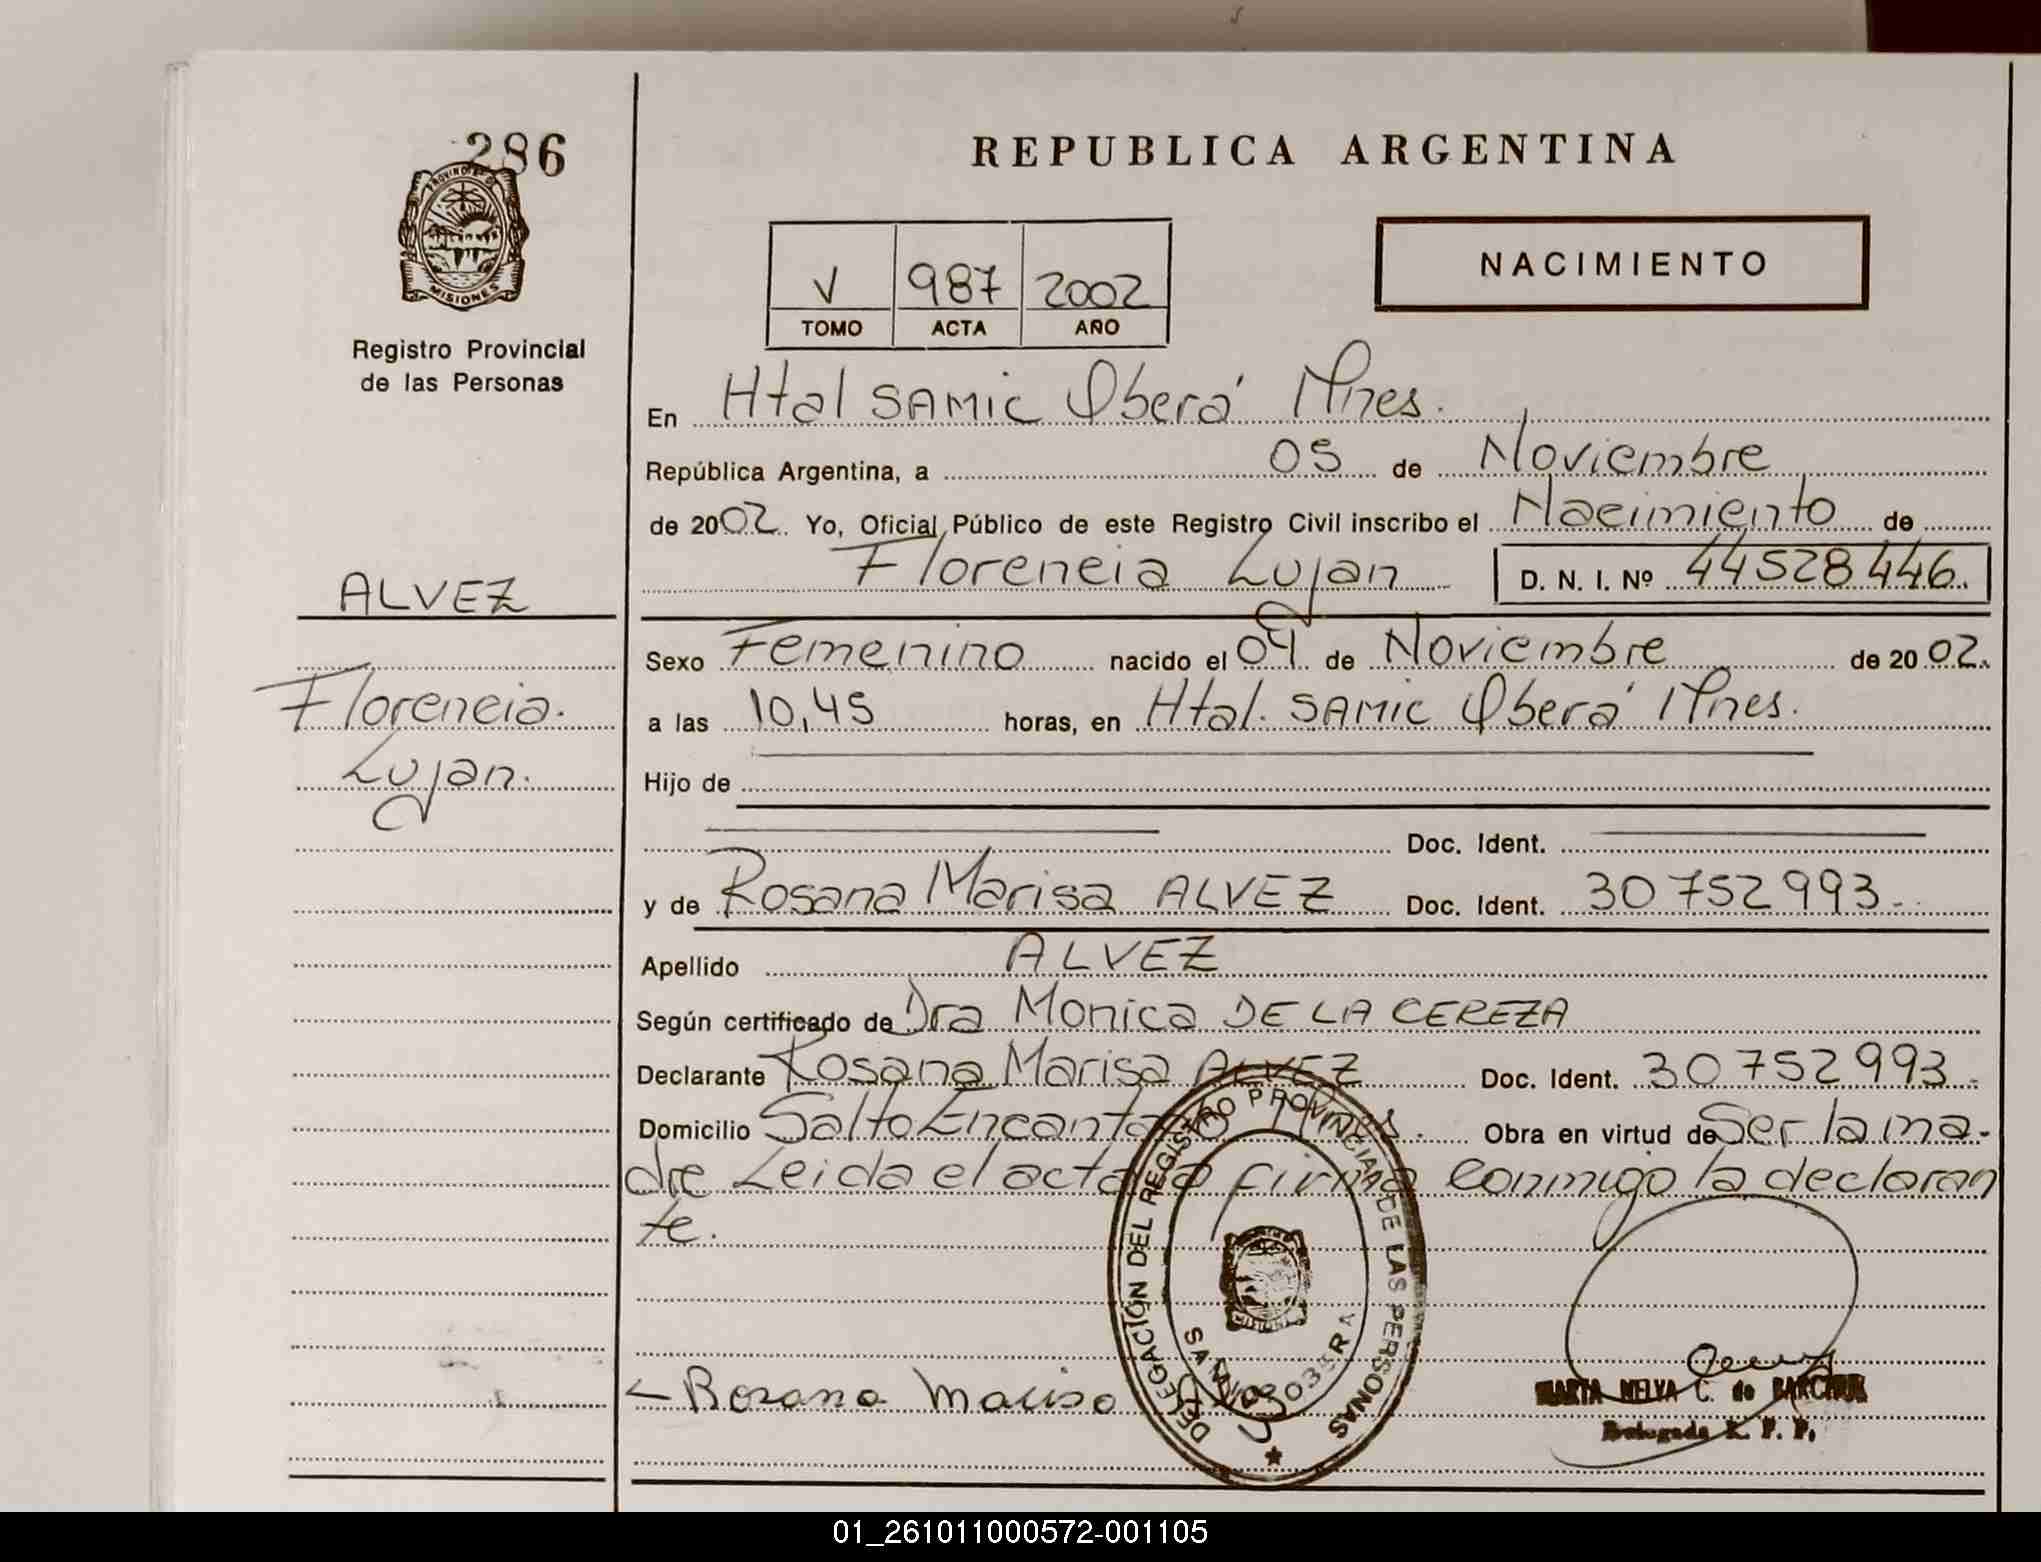 286
REPUBLICA ARGENTINA
PROVINCIA DE
MISIONES
NACIMIENTO
V 987 2002
TOMO ACTA AÑO
Registro Provincial
de las Personas
En Htal SAMIC Oberá Mnes.
República Argentina, a 05 de Noviembre
de 2002. Yo, Oficial Público de este Registro Civil inscribo el Nacimiento de
Florencia Lujan D. N. I. Nº 44528446.
ALVEZ
Florencia.
Lujan.
Sexo Femenino nacido el 04 de Noviembre de 2002.
a las 10,45 horas, en Htal. SAMIC Oberá Mnes.
Hijo de
Doc. Ident.
y de Rosana Marisa ALVEZ Doc. Ident. 30752993.
Apellido ALVEZ
Según certificado de Dra Monica DE LA CEREZA
Declarante Rosana Marisa ALVEZ Doc. Ident. 30752993.
Domicilio Salto Encantado Mnes. Obra en virtud de Ser la ma-
dre Leida el acta la firma conmigo la declaran
te.
DELEGACIÓN DEL REGISTRO PROVINCIAL DE LAS PERSONAS
MISIONES
Rosana Marisa
MARTA NELVA C. de
Delegada R. P. P.
01_261011000572-001105